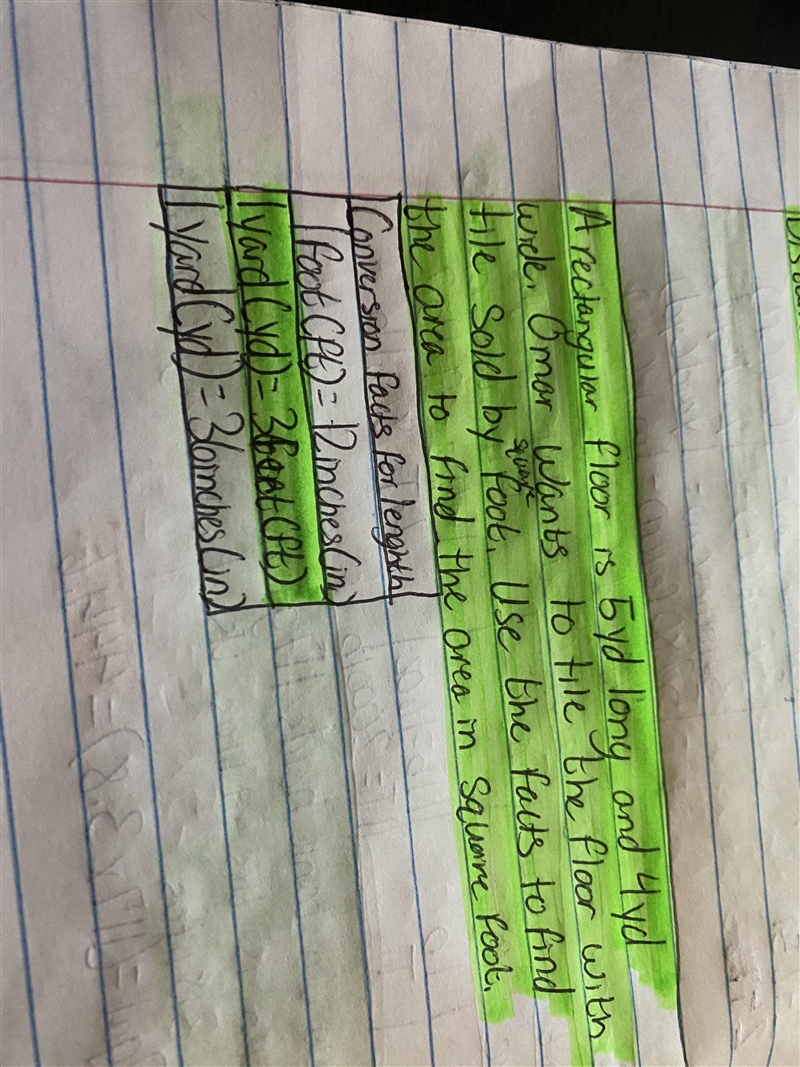 A rectangular floor is 5yd long and 4yd
wide. Omar wants to tile the floor with
tile sold by square foot. Use the facts to find
the area to find the area in square foot.
Conversion facts for lenghth
1 foot(ft) = 12 inches (in)
1 yard (yd) = 3 feet (ft)
1 yard (yd) = 36 inches (in)